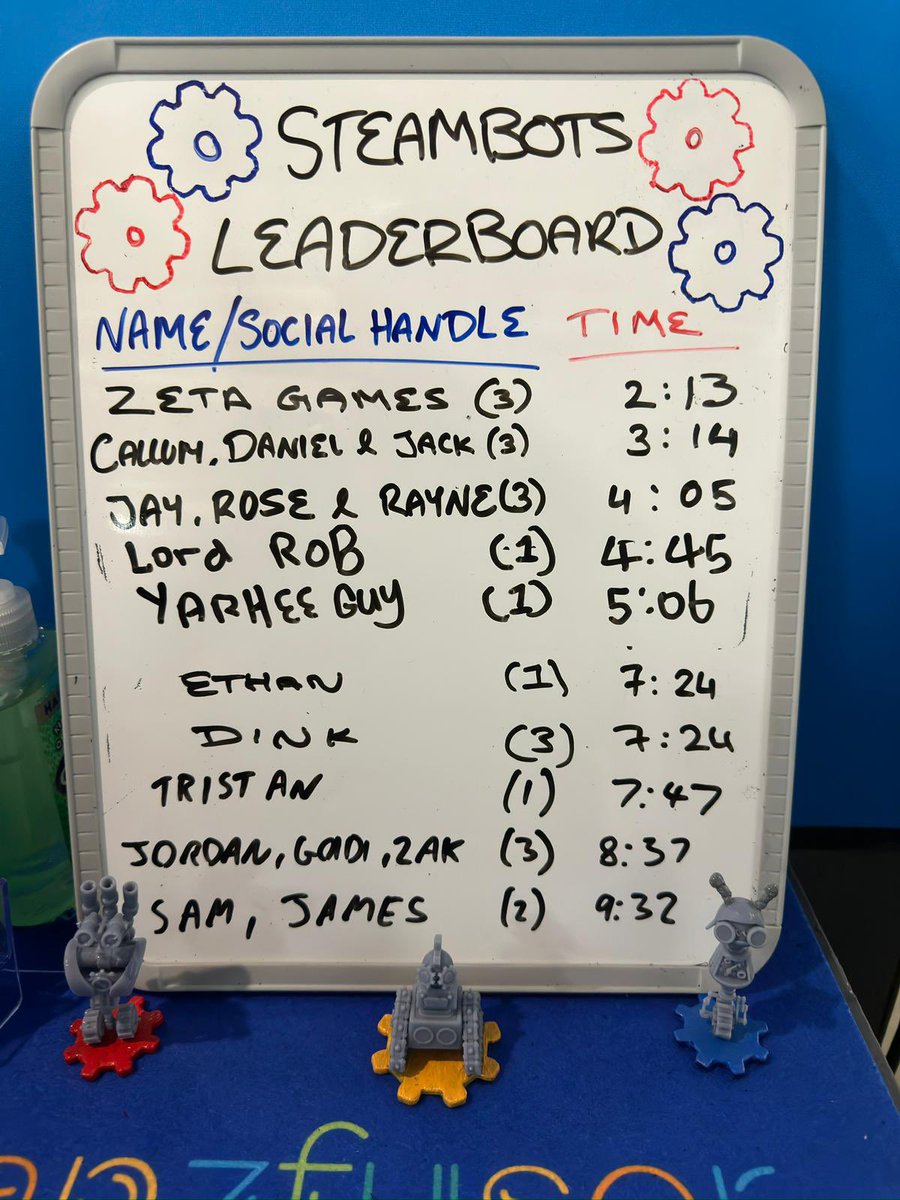 STEAMBOTS
LEADERBOARD
NAME/SOCIAL HANDLE TIME
ZETA GAMES (3) 2:13
CALLUM, DANIEL & JACK (3) 3:14
JAY, ROSE & RAYNE (3) 4:05
Lord ROB (1) 4:45
YARHEE GUY (1) 5:06
ETHAN (1) 7:24
DINK (3) 7:24
TRISTAN (1) 7:47
JORDAN, GOIDI, ZAK (3) 8:37
SAM, JAMES (2) 9:32